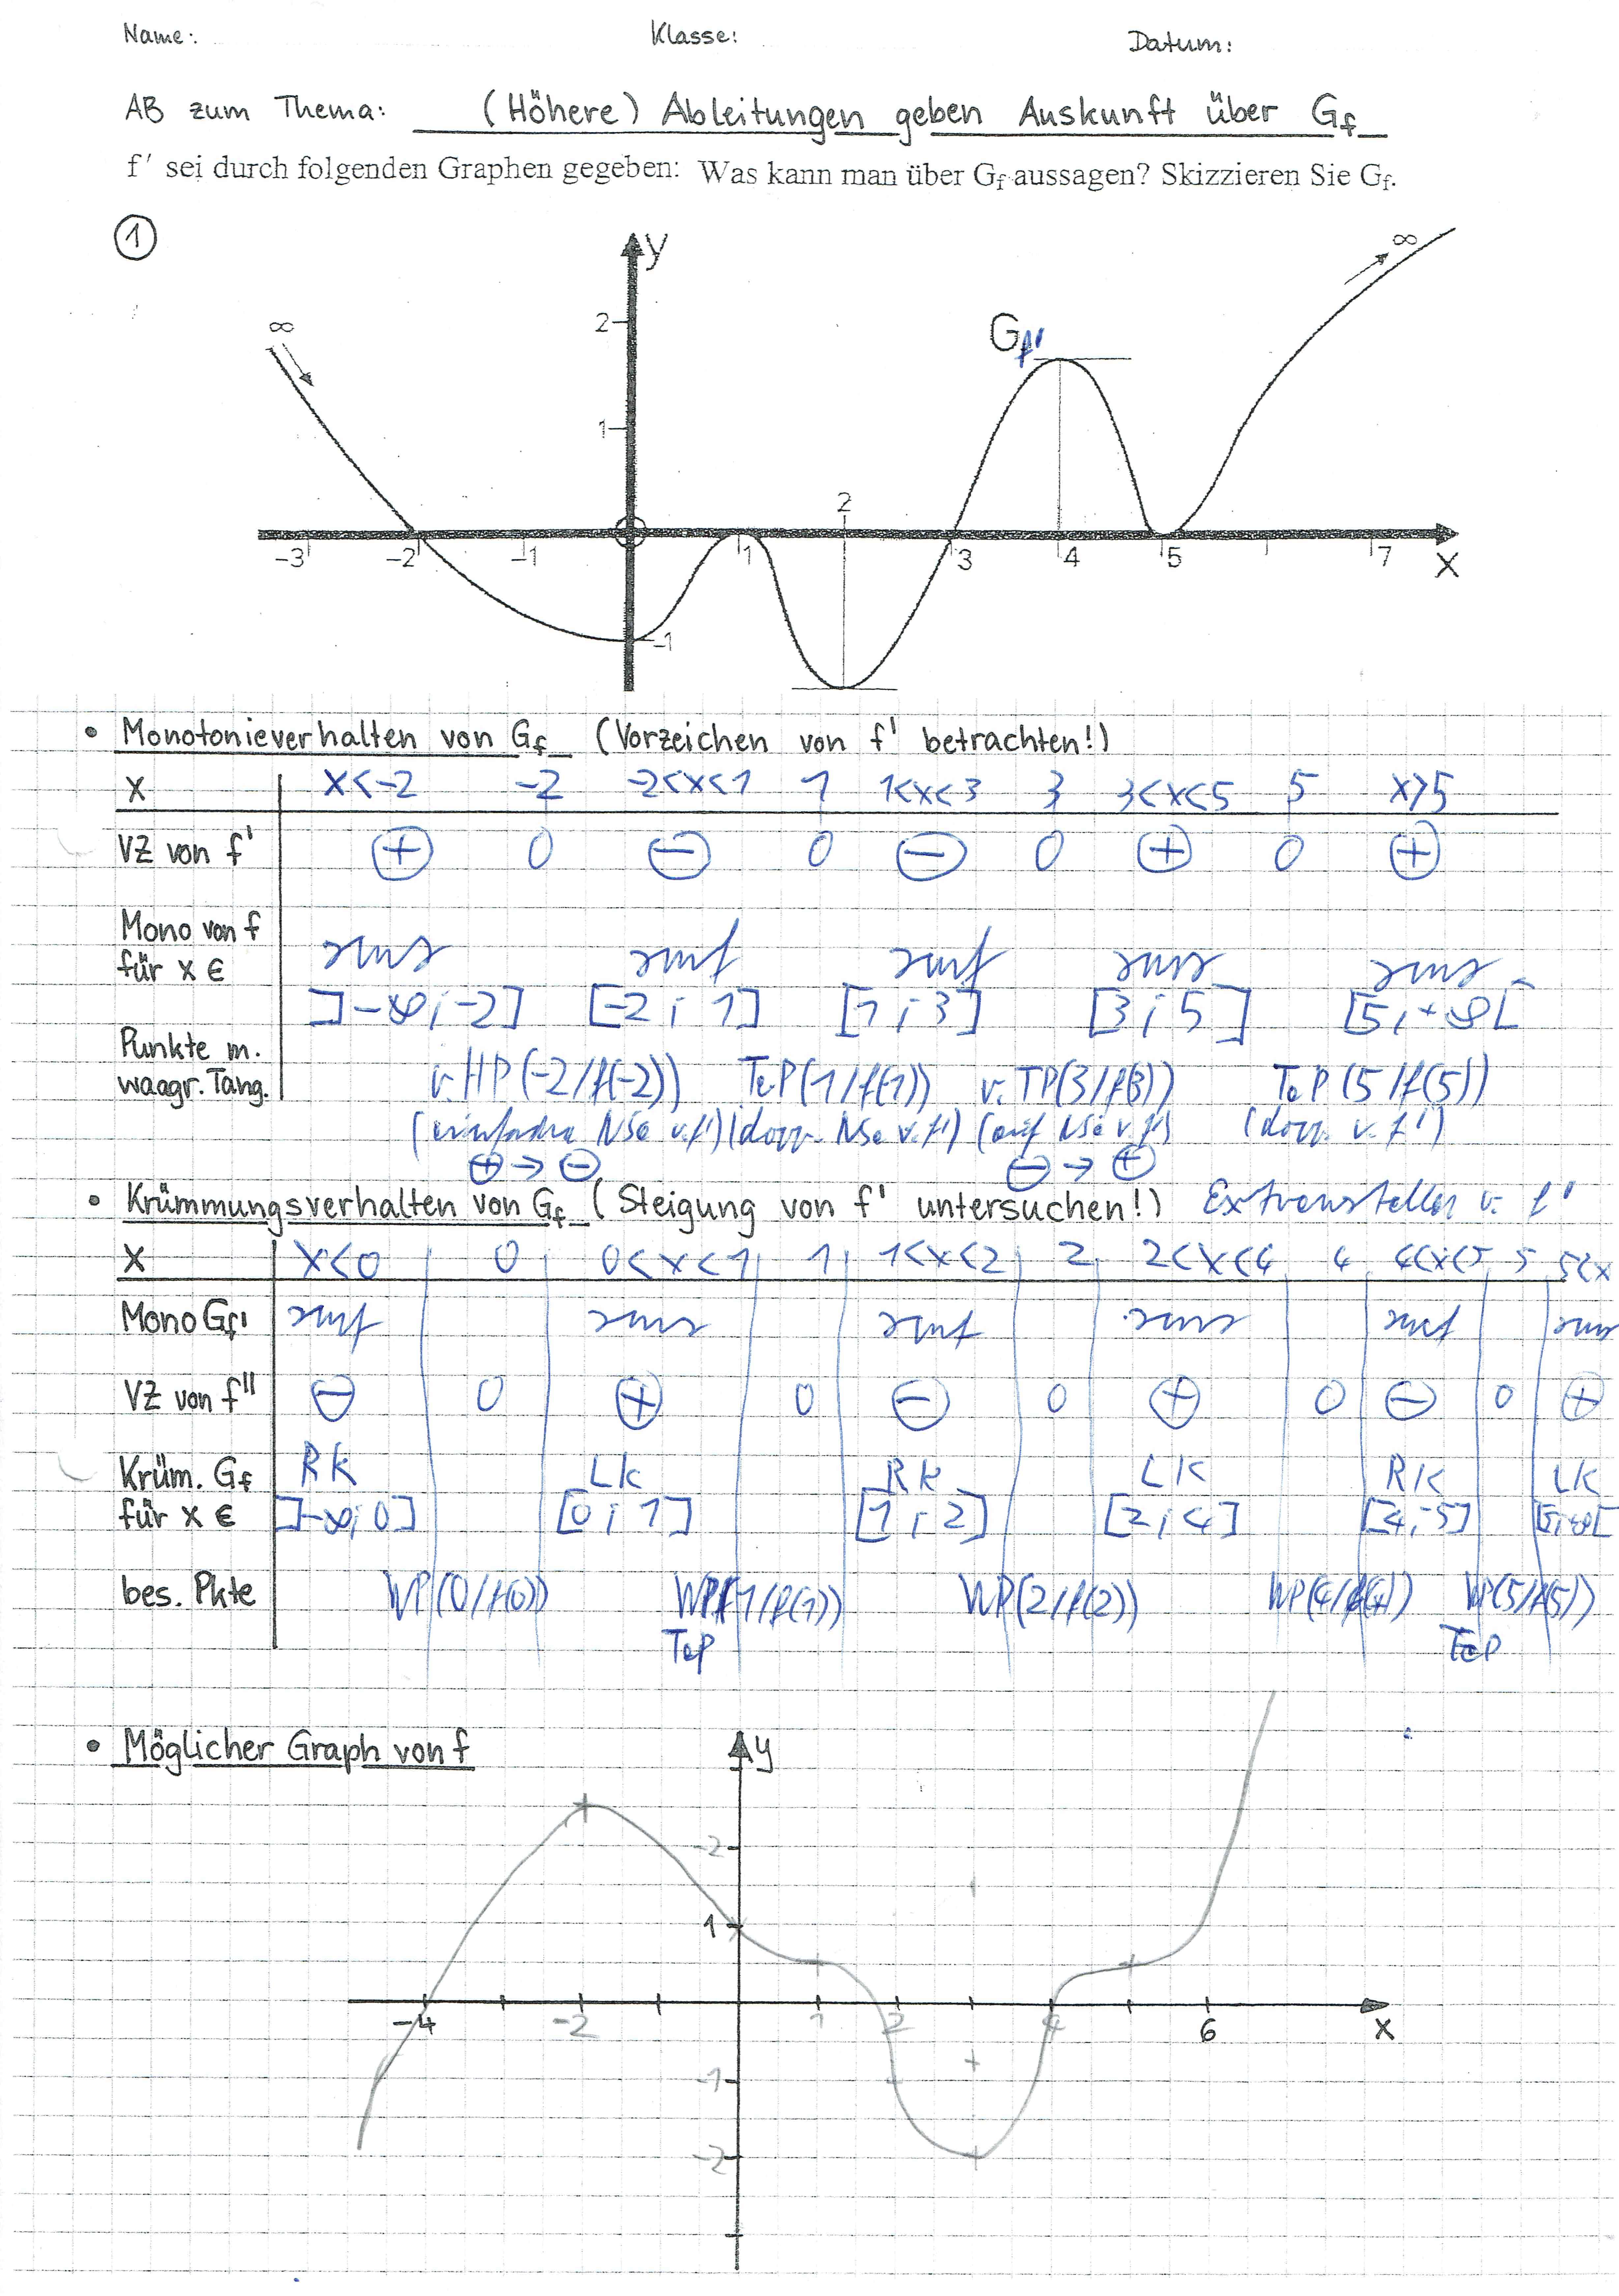 Name: Klasse: Datum:
AB zum Thema: (Höhere) Ableitungen geben Auskunft über Gf
f' sei durch folgenden Graphen gegeben: Was kann man über Gf aussagen? Skizzieren Sie Gf.
1
y
∞ ∞
2
Gf'
1
2
-3 -2 -1 1 3 4 5 7 x
-1
• Monotonieverhalten von Gf (Vorzeichen von f' betrachten!)
x x<-2 -2 -2<x<1 1 1<x<3 3 3<x<5 5 x>5
VZ von f' + 0 - 0 - 0 + 0 +
Mono von f sms smf smf sms sms
für x ∈ ]-∞;-2] [-2;1] [1;3] [3;5] [5;+∞[
Punkte m.
waagr. Tang. v. HP(-2/f(-2)) TeP(1/f(1)) v. TP(3/f(3)) TeP(5/f(5))
(einfache NSe v. f') (dopp. NSe v. f') (einf NSe v. f') (dopp. v. f')
+ → - - → +
• Krümmungsverhalten von Gf (Steigung von f' untersuchen!) Extremstellen v. f'
x x<0 0 0<x<1 1 1<x<2 2 2<x<4 4 4<x<5 5 5<x
Mono Gf' smf sms smf sms smf sms
VZ von f'' - 0 + 0 - 0 + 0 - 0 +
Krüm. Gf Rk Lk Rk LK RK LK
für x ∈ ]-∞;0] [0;1] [1;2] [2;4] [4;5] [5;∞[
bes. Pkte WP(0/f(0)) WP(1/f(1)) WP(2/f(2)) WP(4/f(4)) WP(5/f(5))
TeP TeP
• Möglicher Graph von f
y
2
1
-4 -2 1 2 4 6 x
-1
-2